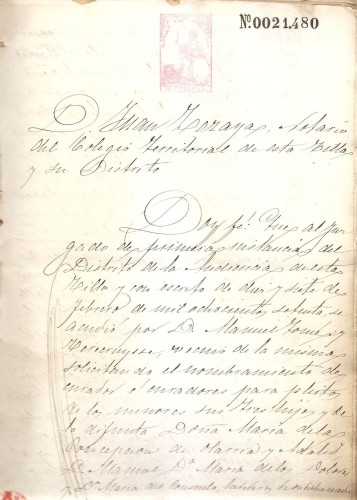 No.0021.480
D. Juan Zozaya, Notario
del Colegio Territorial de esta Villa
y su Distrito
Doy fé: Que al Juz
gado de primera instancia del
Distrito de la Audiencia de esta
Villa y con escrito de diez y siete de
febrero de mil ochocientos setenta, se
acudió por D. Manuel Tomé y
vecino de la misma
solicitando el nombramiento de
curador ó curadores para pleitos
de los menores sus tres hijos y de
la difunta Doña Maria de la
Concepcion de Olarria y Adalid
D. Manuel Da. Maria de los Dolores
y Da. Maria del Consuelo,